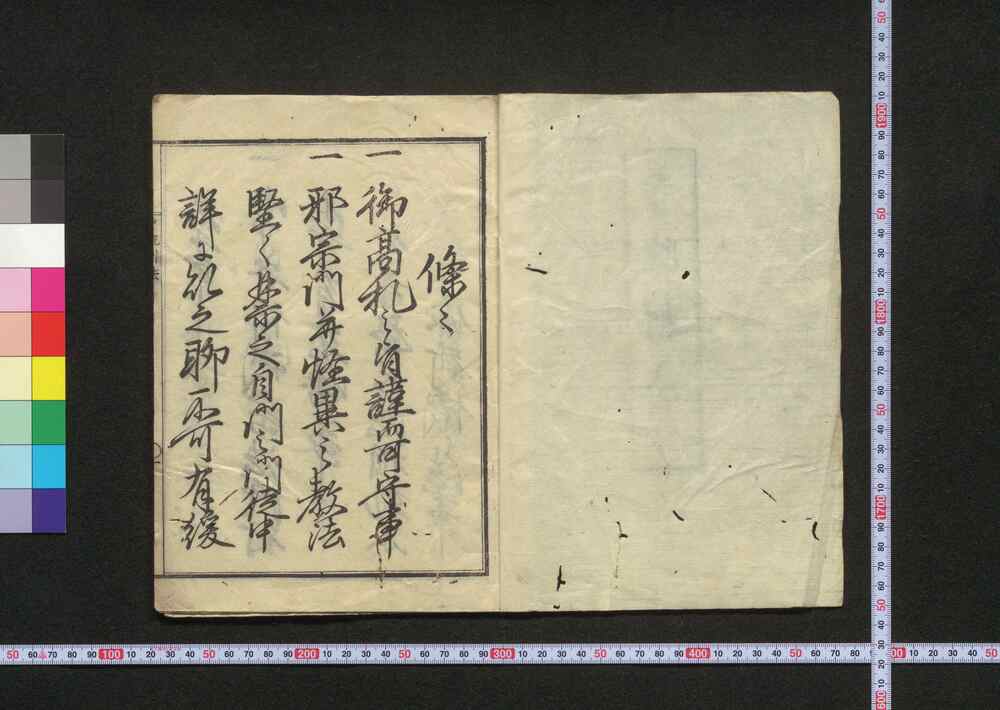 條々
一 御高札之旨謹而可守事
一 邪宗門并怪異之教法
堅く禁之自門之門徒中
詳に知之聊不可有緩